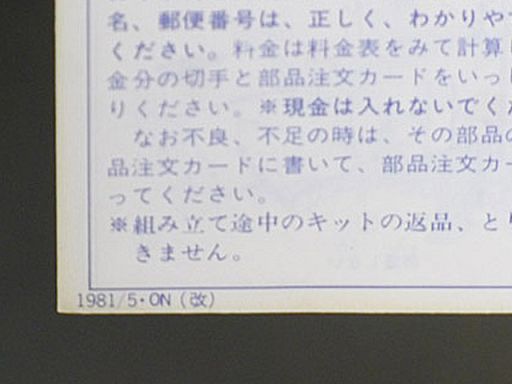 名、郵便番号は、正しく、わかりや
ください。料金は料金表をみて計算
金分の切手と部品注文カードをいっ
りください。※現金は入れないでく
なお不良、不足の時は、その部品の
品注文カードに書いて、部品注文カー
ってください。
※組み立て途中のキットの返品、と
きません。
1981/5・ON（改）